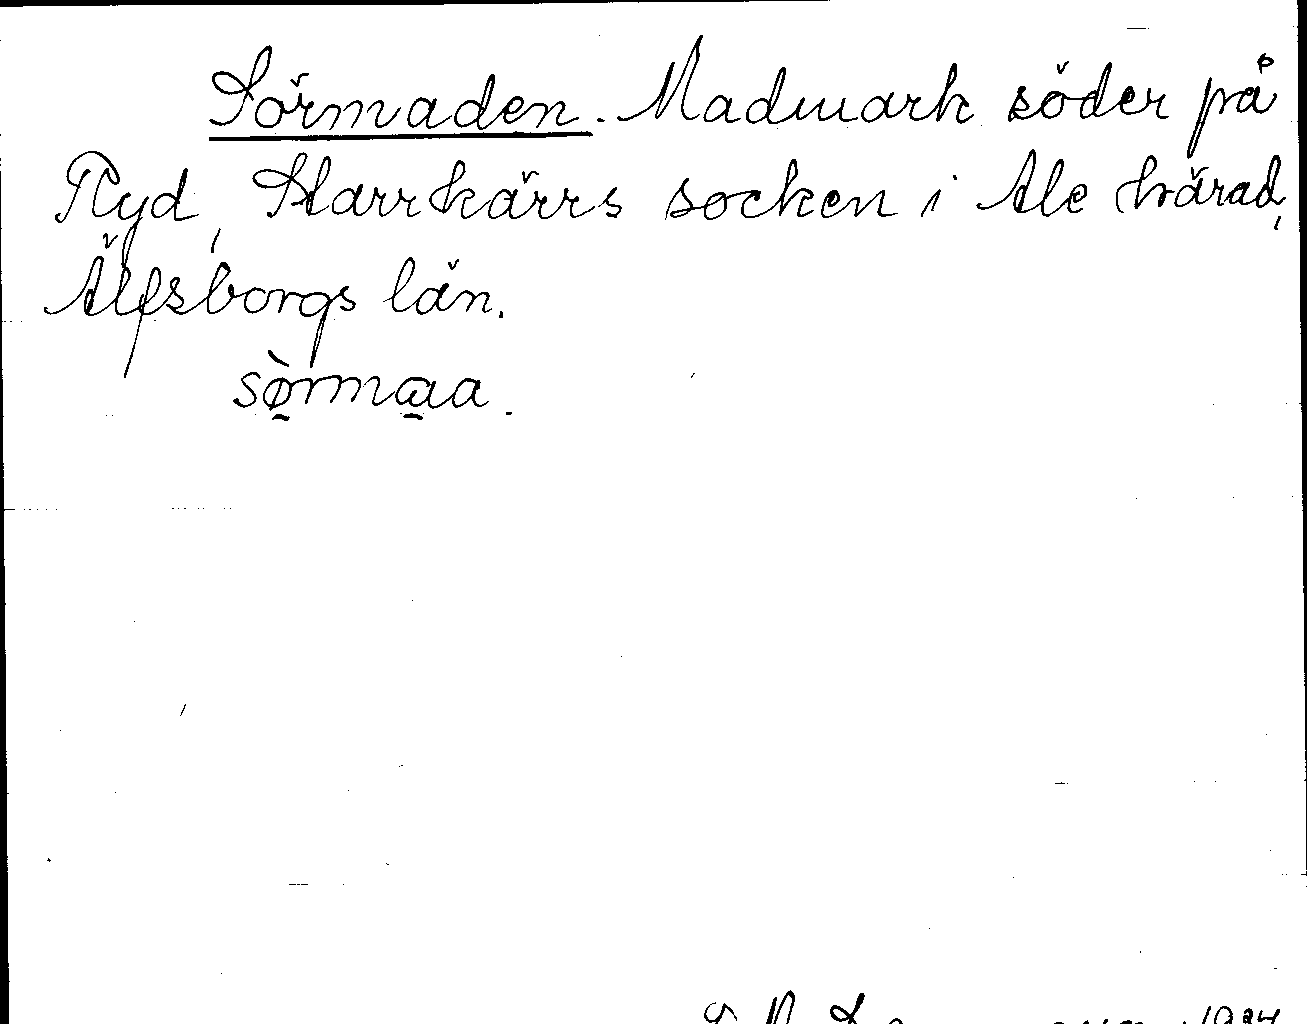 Sörmaden. Madmark söder på
Ryd, Starrkärrs socken i Ale härad,
Älfsborgs län.
sø̱̀rma̱a.
1924